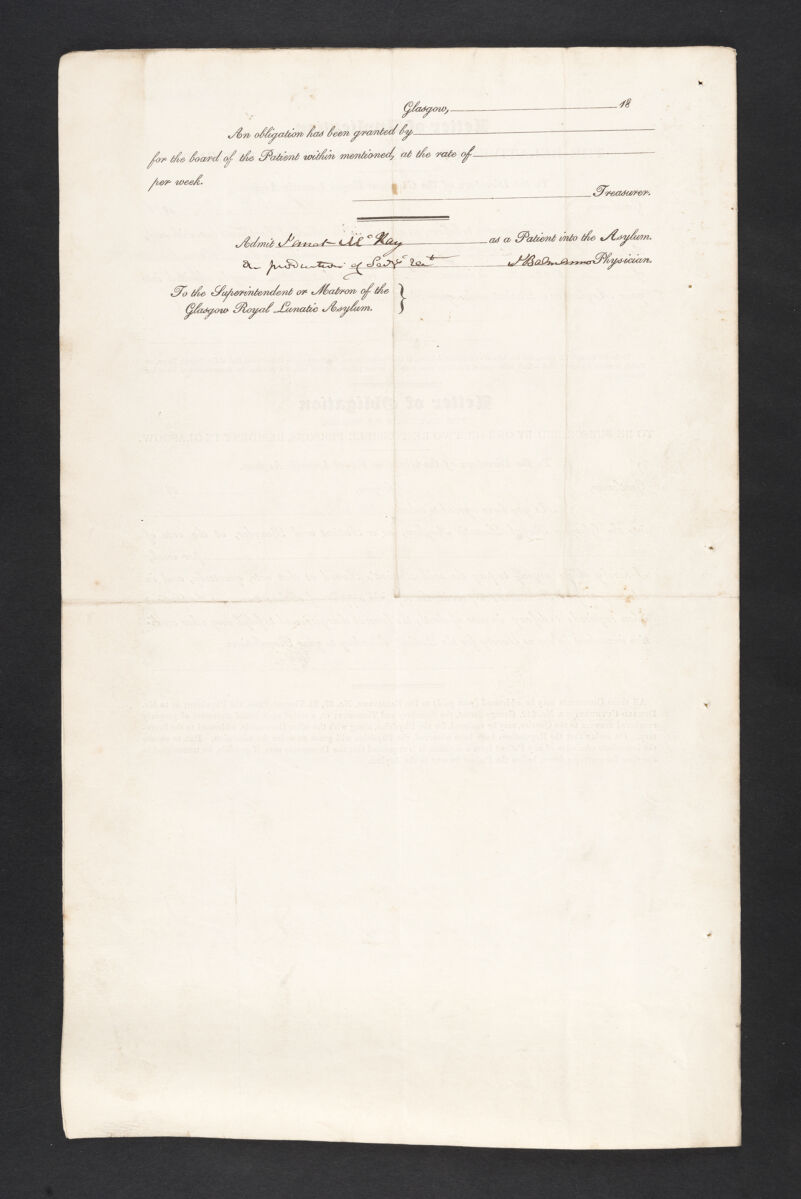 Glasgow, 18
An obligation has been granted by
for the board of the Patient within mentioned, at the rate of
per week.
Treasurer.
Admit Janet McKay as a Patient into the Asylum.
On production of Physician.
To the Superintendent or Matron of the
Glasgow Royal Lunatic Asylum.